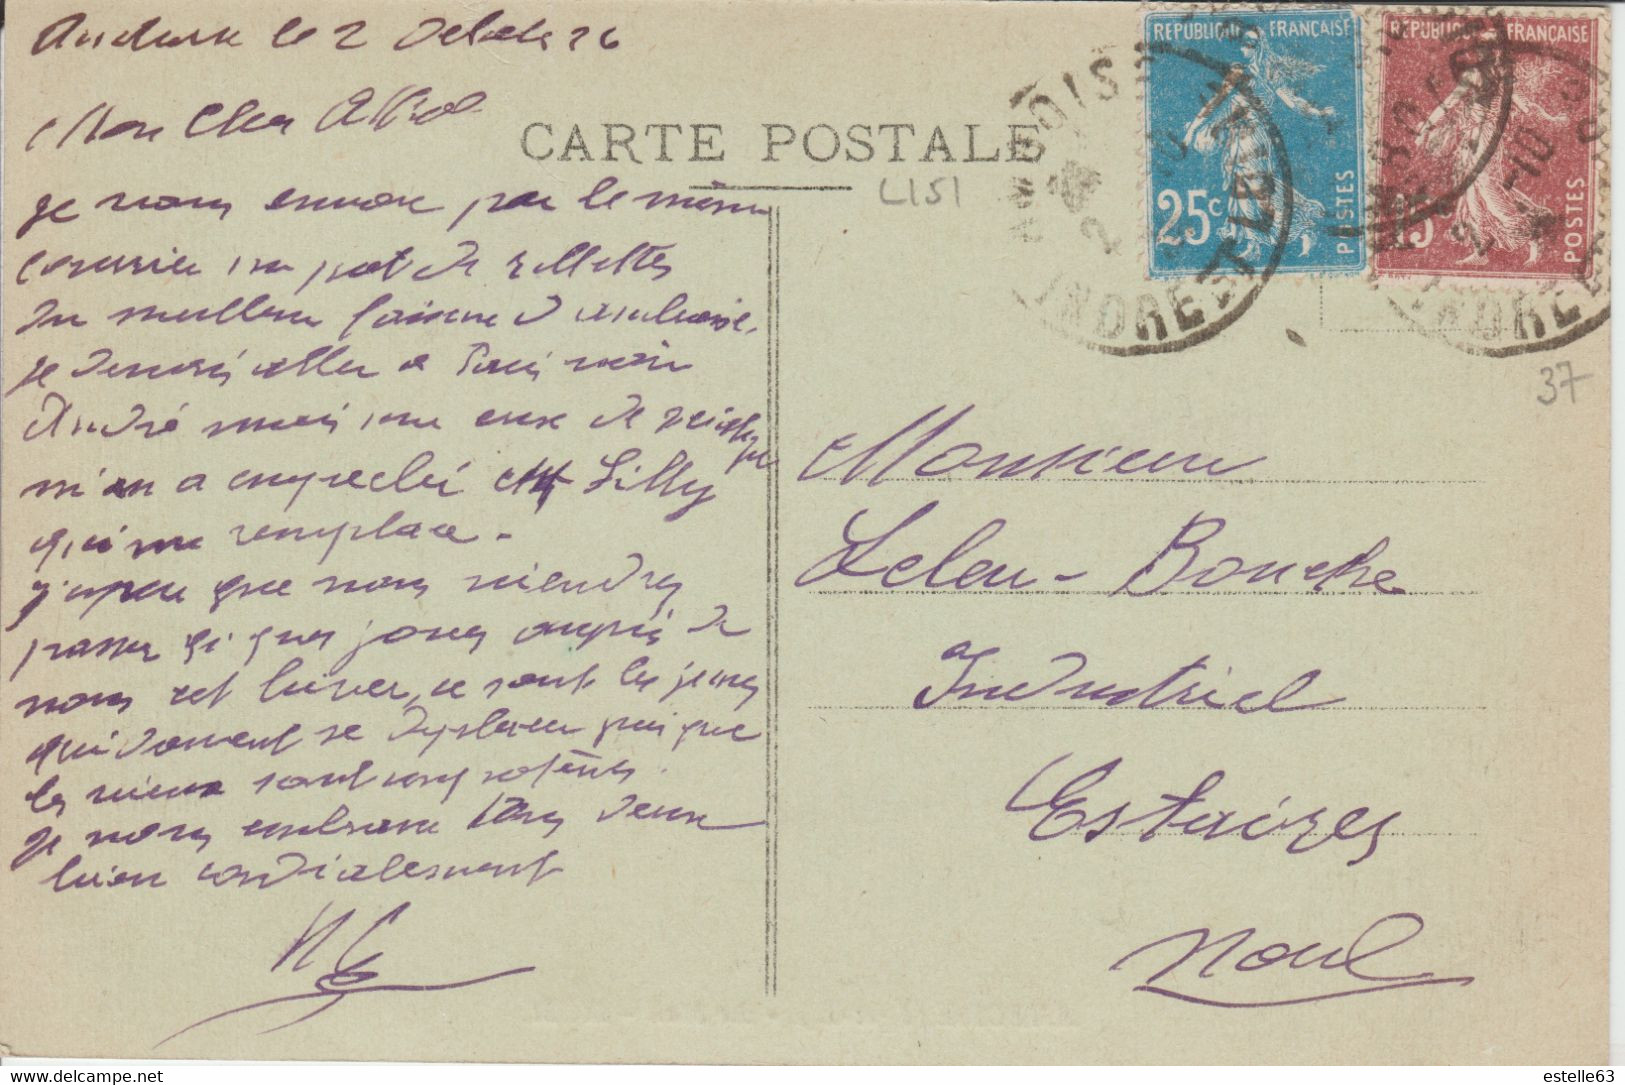 Amboise le 2 Octobre 26
Mon Cher Alfred
je vous envoie par le même
courrier un pot de rillettes
du meilleur faiseur d'amboise,
je devrais aller a Paris voir
André mais une crise de
m'en a empeché Lilly
qui me remplace -
j'espere que vous viendrez
passer qq jours auprès de
nous cet hiver, ce sont les jeunes
qui doivent se deplacer puisque
les vieux sont
je vous embrasse tous deux
bien cordialement
CARTE POSTALE
L151
REPUBLIQUE FRANÇAISE
25c
POSTES
REPUBLIQUE FRANÇAISE
15c
POSTES
AMBOISE
INDRE ET L
2 -10
37
Monsieur
Leleu - Bouche
Industriel
Estaires
Nord
estelle63